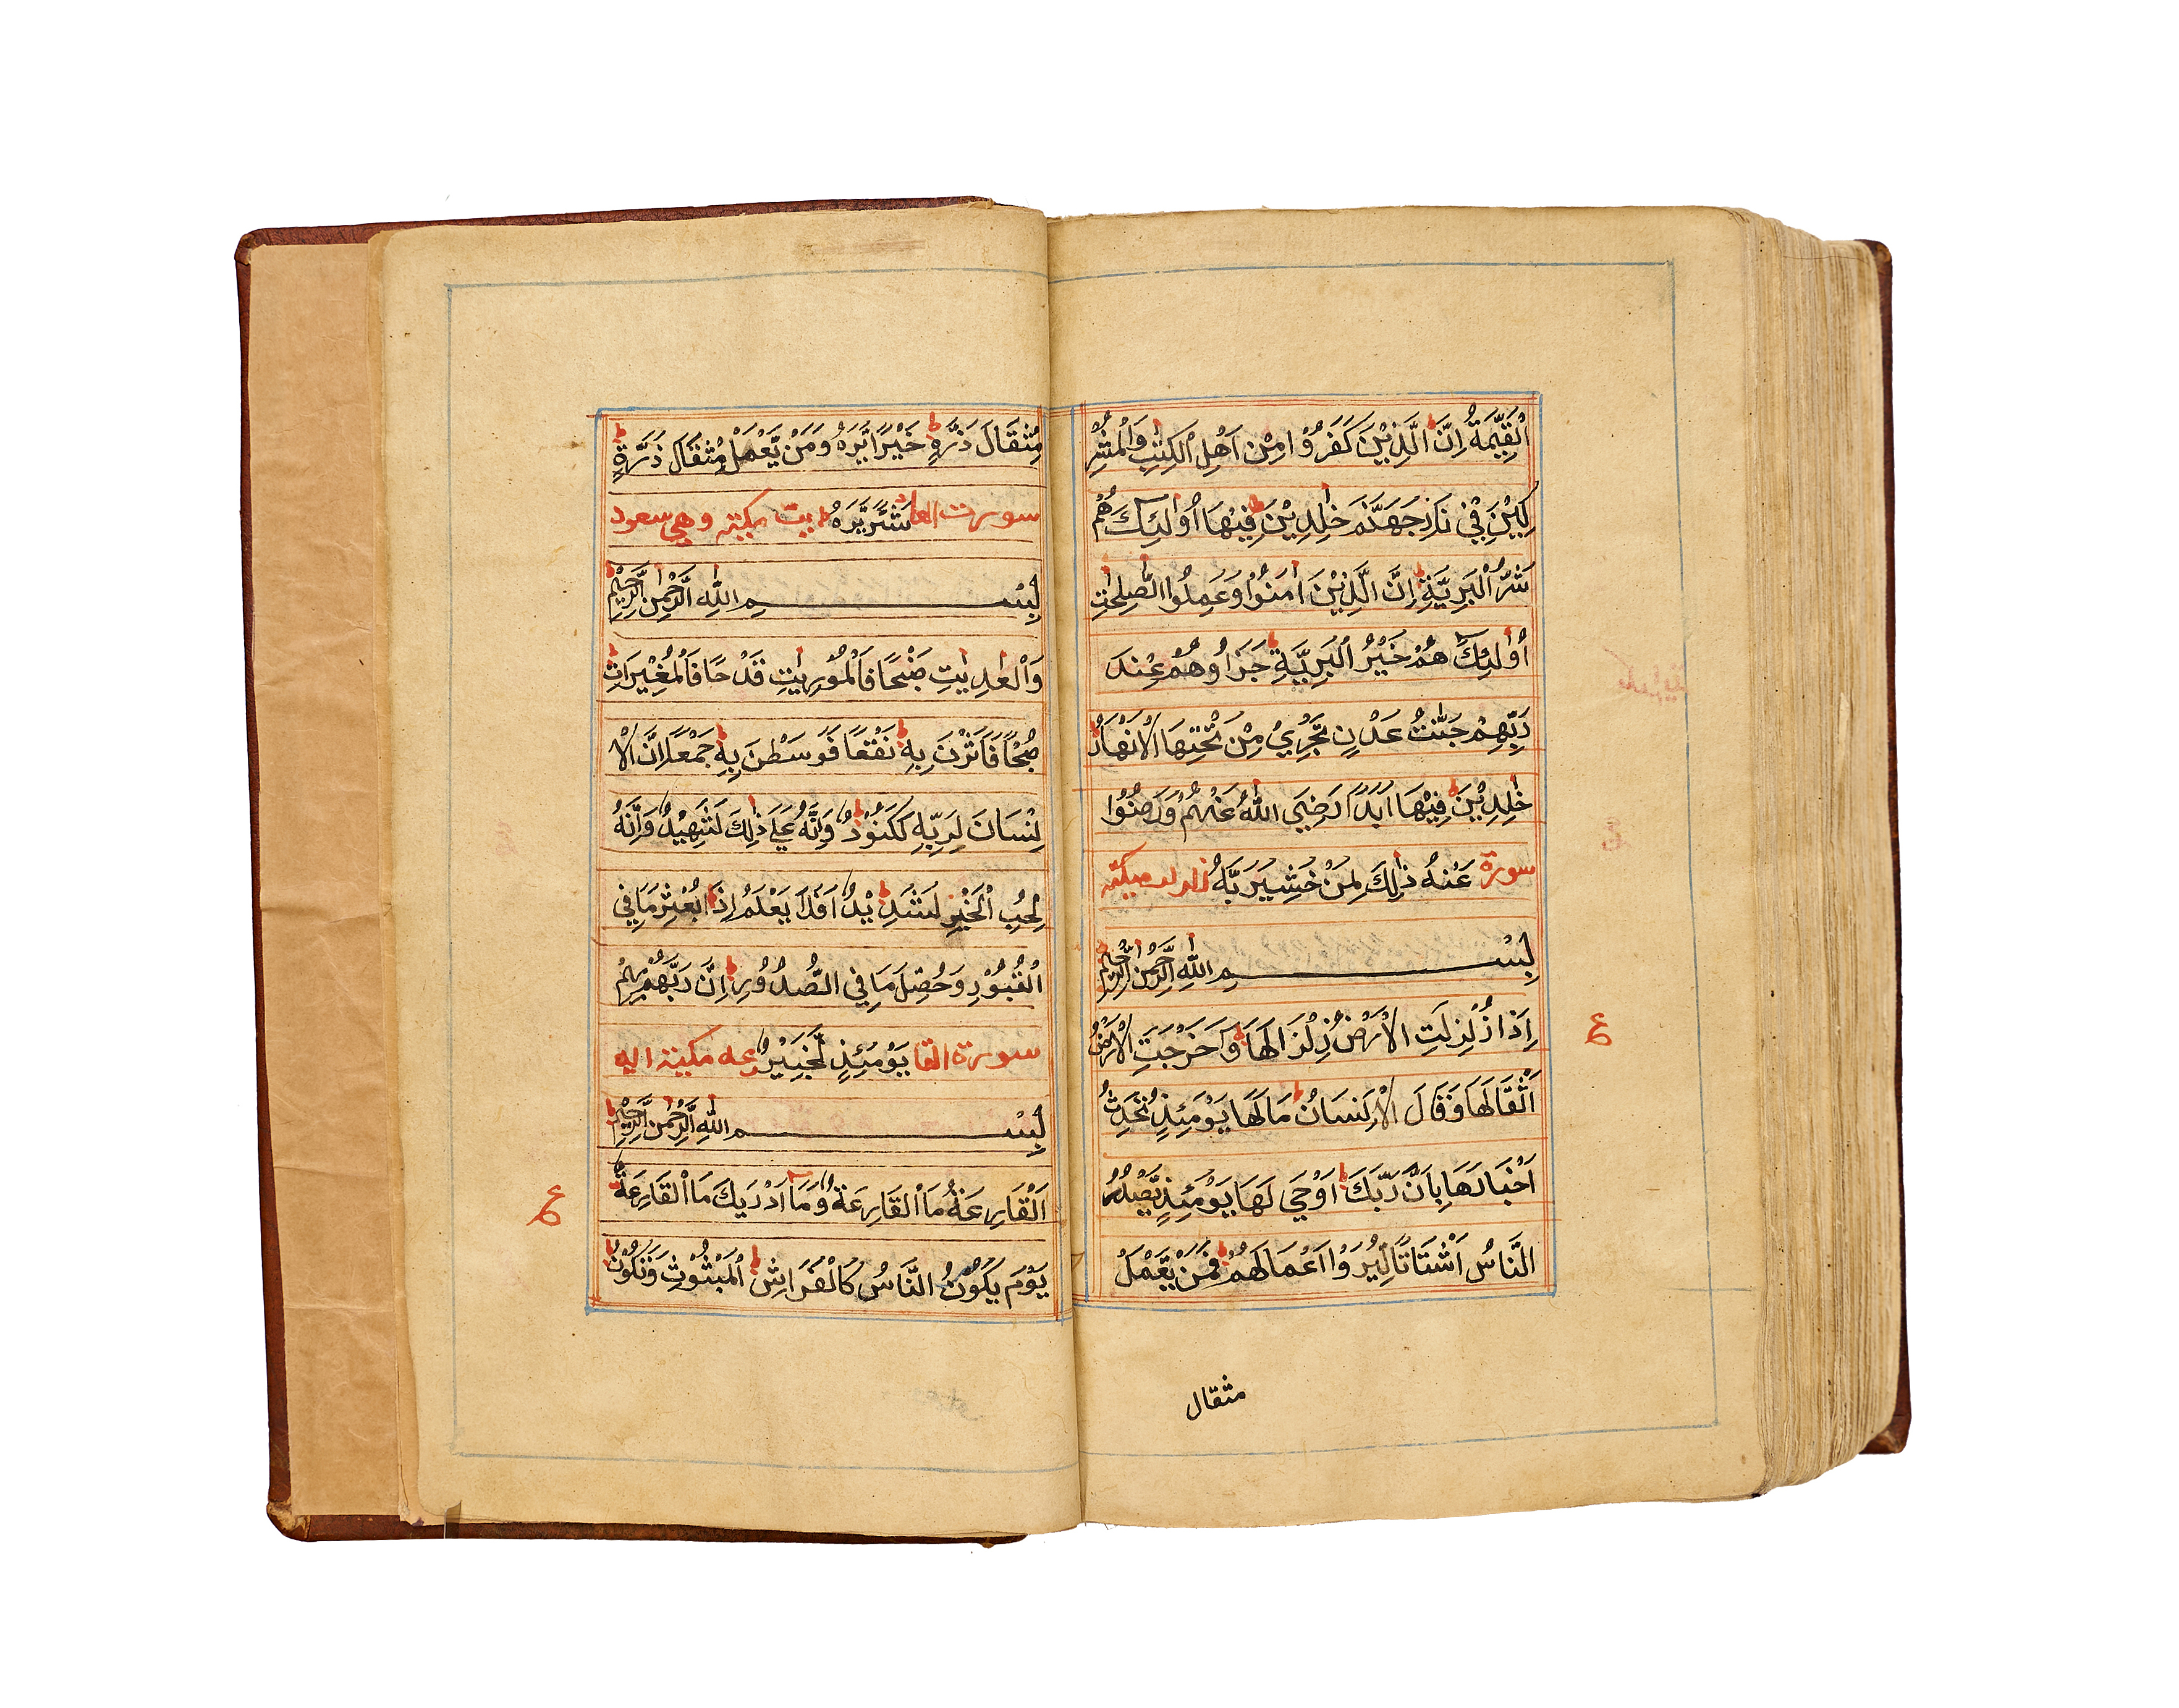 الْقَيِّمَةُ اِنَّ الَّذِيْنَ كَفَرُوْا مِنْ اَهْلِ الْكِتٰبِ وَالْمُشْرِ
كِيْنَ فِيْ نَارِ جَهَنَّمَ خٰلِدِيْنَ فِيْهَا اُولٰئِكَ هُمْ
شَرُّ الْبَرِيَّةِ اِنَّ الَّذِيْنَ اٰمَنُوْا وَعَمِلُوا الصّٰلِحٰتِ
اُولٰئِكَ هُمْ خَيْرُ الْبَرِيَّةِ جَزَاؤُهُمْ عِنْدَ
رَبِّهِمْ جَنّٰتُ عَدْنٍ تَجْرِيْ مِنْ تَحْتِهَا الْاَنْهَارُ
خٰلِدِيْنَ فِيْهَا اَبَدًا رَضِيَ اللّٰهُ عَنْهُمْ وَرَضُوْا
سورة عَنْهُ ذٰلِكَ لِمَنْ خَشِيَ رَبَّهُ زلزلت مكية
بِسْمِ اللّٰهِ الرَّحْمٰنِ الرَّحِيْمِ
اِذَا زُلْزِلَتِ الْاَرْضُ زِلْزَالَهَا وَاَخْرَجَتِ الْاَرْضُ
ع
اَثْقَالَهَا وَقَالَ الْاِنْسَانُ مَا لَهَا يَوْمَئِذٍ تُحَدِّثُ
اَخْبَارَهَا بِاَنَّ رَبَّكَ اَوْحٰى لَهَا يَوْمَئِذٍ يَّصْدُرُ
النَّاسُ اَشْتَاتًا لِّيُرَوْا اَعْمَالَهُمْ فَمَنْ يَّعْمَلْ
مثقال
مِثْقَالَ ذَرَّةٍ خَيْرًا يَّرَهُ وَمَنْ يَّعْمَلْ مِثْقَالَ ذَرَّةٍ
سورت العاد شَرًّا يَّرَهُ يت مكية وهي
بِسْمِ اللّٰهِ الرَّحْمٰنِ الرَّحِيْمِ
وَالْعٰدِيٰتِ ضَبْحًا فَالْمُوْرِيٰتِ قَدْحًا فَالْمُغِيْرَاتِ
صُبْحًا فَاَثَرْنَ بِهٖ نَقْعًا فَوَسَطْنَ بِهٖ جَمْعًا اِنَّ الْاِ
نْسَانَ لِرَبِّهٖ لَكَنُوْدٌ وَاِنَّهُ عَلٰى ذٰلِكَ لَشَهِيْدٌ وَاِنَّهُ
لِحُبِّ الْخَيْرِ لَشَدِيْدٌ اَفَلَا يَعْلَمُ اِذَا بُعْثِرَ مَا فِي
الْقُبُوْرِ وَحُصِّلَ مَا فِي الصُّدُوْرِ اِنَّ رَبَّهُمْ بِهِمْ
سورة القا يَوْمَئِذٍ لَّخَبِيْرٌ رعه مكية
بِسْمِ اللّٰهِ الرَّحْمٰنِ الرَّحِيْمِ
اَلْقَارِعَةُ مَا الْقَارِعَةُ وَمَا اَدْرٰىكَ مَا الْقَارِعَةُ
ع
يَوْمَ يَكُوْنُ النَّاسُ كَالْفَرَاشِ الْمَبْثُوْثِ وَتَكُوْنُ